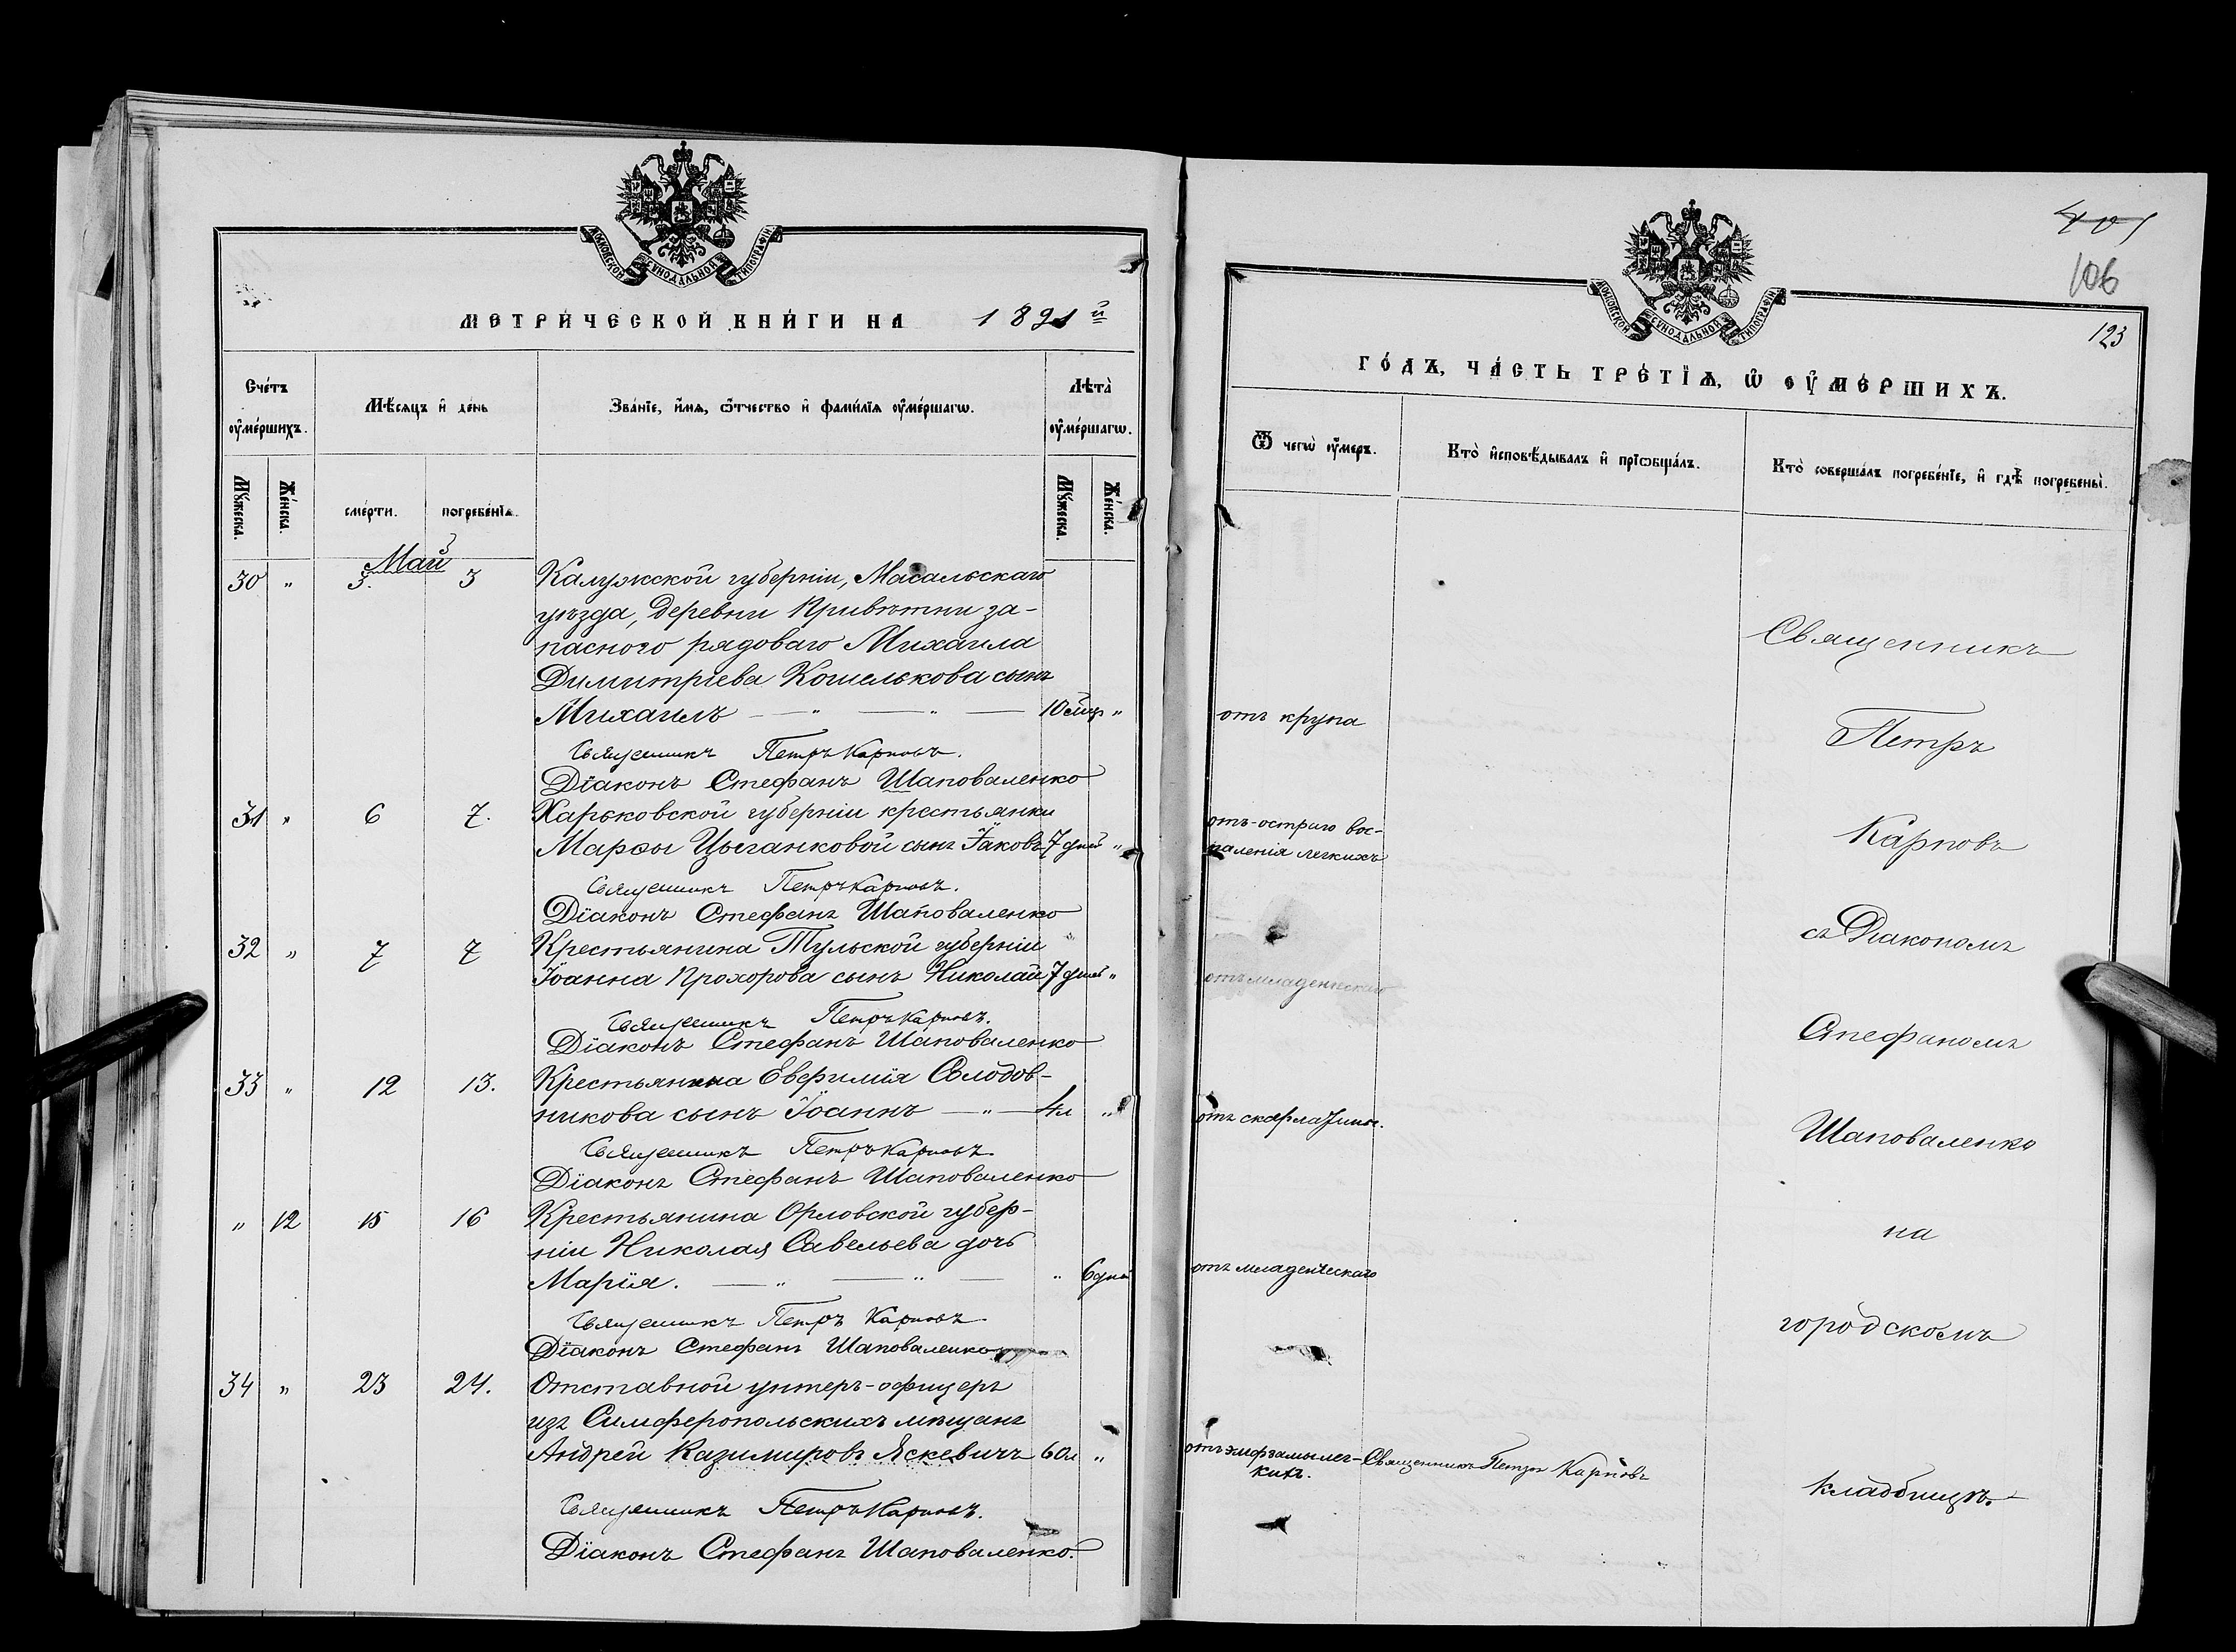 МОСКОВСКОЙ СѴНОДАЛЬНОЙ ТИПОГРАФІИ
МЕТРИЧЕСКОЙ КНИГИ НА 1891 й
Счетъ оумершихъ.
Мѣсяцъ и день
Званїе, имя, ѿтчество и фамилїя оумершагѡ.
Лѣта оумершагѡ.
Мꙋжеска.
Женска.
смерти.
погребенїя.
Мꙋжеска.
Женска.
Май
30 " 3. 3 Калужской губерніи, Масальскаго
уѣзда, деревни Кривѣтни за-
пасного рядоваго Михаила
Димитріева Кошелькова сынъ
Михаилъ — " — " — 10 мѣц "
Священникъ Петръ Карповъ.
Діаконъ Стефанъ Шаповаленко
31 " 6 7. Харьковской губерніи крестьянки
Марѳы Цыганковой сынъ Іаковъ 7 дней "
Священникъ Петръ Карповъ.
Діаконъ Стефанъ Шаповаленко
32 " 7 7 Крестьянина Тульской губерніи
Іоанна Прохорова сынъ Николай 7 дней "
Священникъ Петръ Карповъ.
Діаконъ Стефанъ Шаповаленко
33 " 12 13. Крестьянина Евфимія Солодов-
никова сынъ Іоаннъ — " — 4 л "
Священникъ Петръ Карповъ
Діаконъ Стефанъ Шаповаленко
" 12 15 16 Крестьянина Орловской губер-
ніи Николая Савельева дочь
Марія. — " — " — " 6 дней
Священникъ Петръ Карповъ.
Діаконъ Стефанъ Шаповаленко
34 " 23 24. Отставной унтеръ-офицеръ
изъ Симферопольскихъ мѣщанъ
Андрей Казимировъ Яскевичъ 60 л "
Священникъ Петръ Карповъ.
Діаконъ Стефанъ Шаповаленко.
106
123
МОСКОВСКОЙ СѴНОДАЛЬНОЙ ТИПОГРАФІИ
ГОДЪ, ЧАСТЬ ТРЕТЇѦ, Ѡ ОУМЕРШИХЪ.
Ѿ чегѡ оумеръ.
Кто исповѣдывалъ и прїѡбщалъ.
Кто совершалъ погребенїе, и гдѣ погребены.
отъ крупа
отъ острого вос-
паленія легкихъ
отъ младенческаго
отъ скарлатины.
отъ младенческаго
отъ эмфземы лег-
кихъ.
Священникъ Петръ Карповъ
Священникъ
Петръ
Карповъ
съ Діакономъ
Стефаномъ
Шаповаленко
на
городскомъ
кладбищѣ.